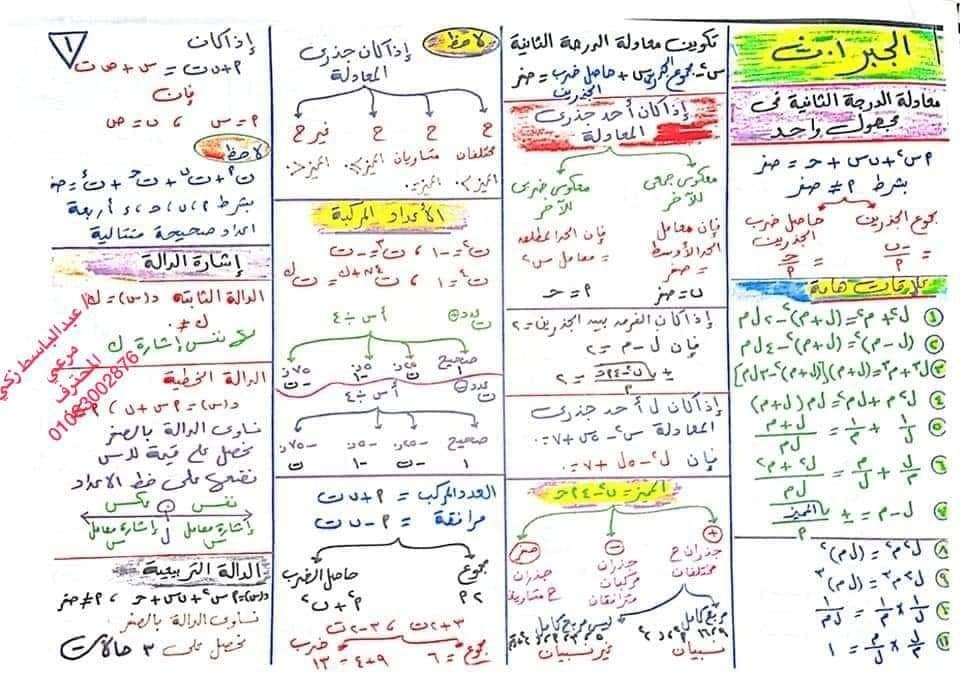 الجبر ا.ث
معادلة الدرجة الثانية فى
مجهول واحد
م س٢ + ب س + ح = صفر
بشرط م ≠ صفر
مجموع الجذرين
= -ب/م
حاصل ضرب الجذرين
= ح/م
علاقات هامة
١ ل٢ + م٢ = (ل+م)٢ - ٢ ل م
٢ (ل-م)٢ = (ل+م)٢ - ٤ ل م
٣ ل٣ + م٣ = (ل+م)[(ل+م)٢ - ٣ ل م]
٤ ل٢م + ل م٢ = ل م (ل+م)
٥ ١/ل + ١/م = ل+م/ل م
٦ ل/م + م/ل = ل٢+م٢/ل م
٧ ل-م = ± √المميز/م
٨ ل٢ م٢ = (ل م)٢
٩ ل٣ م٣ = (ل م)٣
١٠ ١/ل × ١/م = ١/ل م
١١ ل/م × م/ل = ١
تكوين معادلة الدرجة الثانية
س٢ - مجموع الجذرين س + حاصل ضرب الجذرين = صفر
إذا كان أحد جذرى
المعادلة
معكوس جمعى
للآخر
فإن معامل
الحد الأوسط
= صفر
ب = صفر
معكوس ضربى
للآخر
فإن الحد المطلق
= معامل س٢
م = ح
إذا كان الفرق بين الجذرين = ٢
فإن ل - م = ٢
± √ب٢-٤م ح/م = ٢
إذا كان ل أحد جذرى
المعادلة س٢ - ٥س + ٧ = ٠
فإن ل٢ - ٥ل + ٧ = ٠
المميز = ب٢ - ٤ م ح
+
جذران ح
مختلفان
-
جذران
مركبان
مترافقان
صفر
جذران
ح متساويان
مربع كامل
نسبيان
ليس مربع كامل
غير نسبيان
لاحظ
إذا كان جذرى
المعادلة
ح
مختلفان
المميز > ٠
ح
متساويان
المميز = ٠
ح
المميز ≥ ٠
غير ح
المميز < ٠
الأعداد المركبة
ت٢ = -١ ، ت٣ = -ت
ت٤ = ١ ، ت٤ن+ك = ت ك
ت عدد +
أس ÷ ٤
صحيح
١
٠٫٢٥
ت
٠٫٥
-١
٠٫٧٥
-ت
ت عدد -
أس ÷ ٤
صحيح
١
-٠٫٢٥
-ت
-٠٫٥
-١
-٠٫٧٥
ت
العدد المركب = م + ب ت
مرافقة = م - ب ت
مجموع
٢ م
حاصل الضرب
م٢ + ب٢
٣+٢ت ، ٣-٢ت
مجموع = ٦
ضرب
٩+٤ = ١٣
١
إذا كان
م + ب ت = س + ص ت
فإن
م = س ، ب = ص
لاحظ
ت م + ت ب + ت ح + ت ء = صفر
بشرط م ، ب ، ح ، ء أربعة
اعداد صحيحة متتالية
إشارة الدالة
الدالة الثابته د(س) = ك
ك ≠ ٠
نفس إشارة ك
الدالة الخطية
د(س) = م س + ب ، م ≠ ٠
نساوى الدالة بالصفر
نحصل على قيمة للـ س
نضعها على خط الاعداد
نفس
إشارة معامل س
عكس
إشارة معامل س
الدالة التربيعية
د(س) = م س٢ + ب س + ح ، م ≠ صفر
نساوى الدالة بالصفر
نحصل على ٣ حالات
ا/ عبدالباسط زكي
مرعي
المحترف
01083002876